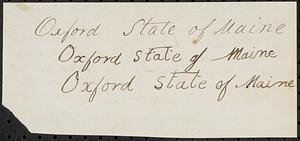 Oxford State of Maine
Oxford State of Maine
Oxford State of Maine